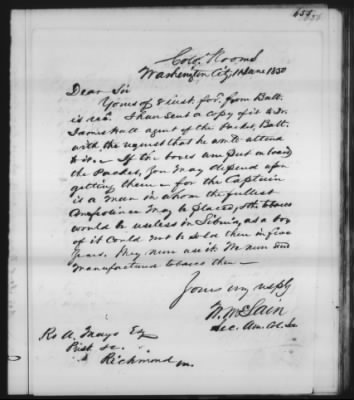 655
Colo. Rooms
Washington City, June 1850
Dear Sir
Yours of 8 inst. fwd. from Balt.
is recd. I have sent a copy of it to Dr.
James Hall agent of the Packet, Balt.
with the request that he will attend
to it. If the boxes are put on board
the Packet, you may depend upon
getting them – for the Captain
is a man in whom the fullest
confidence may be placed, the tobacco
would be useless in Liberia, as a box
of it could not be sold there in five
years. They never use it. No
manufactured tobacco there –
Yours very resply
W. McLain
Sec. Am. Col. So
Ro. A. Mayo Esq
Richmond